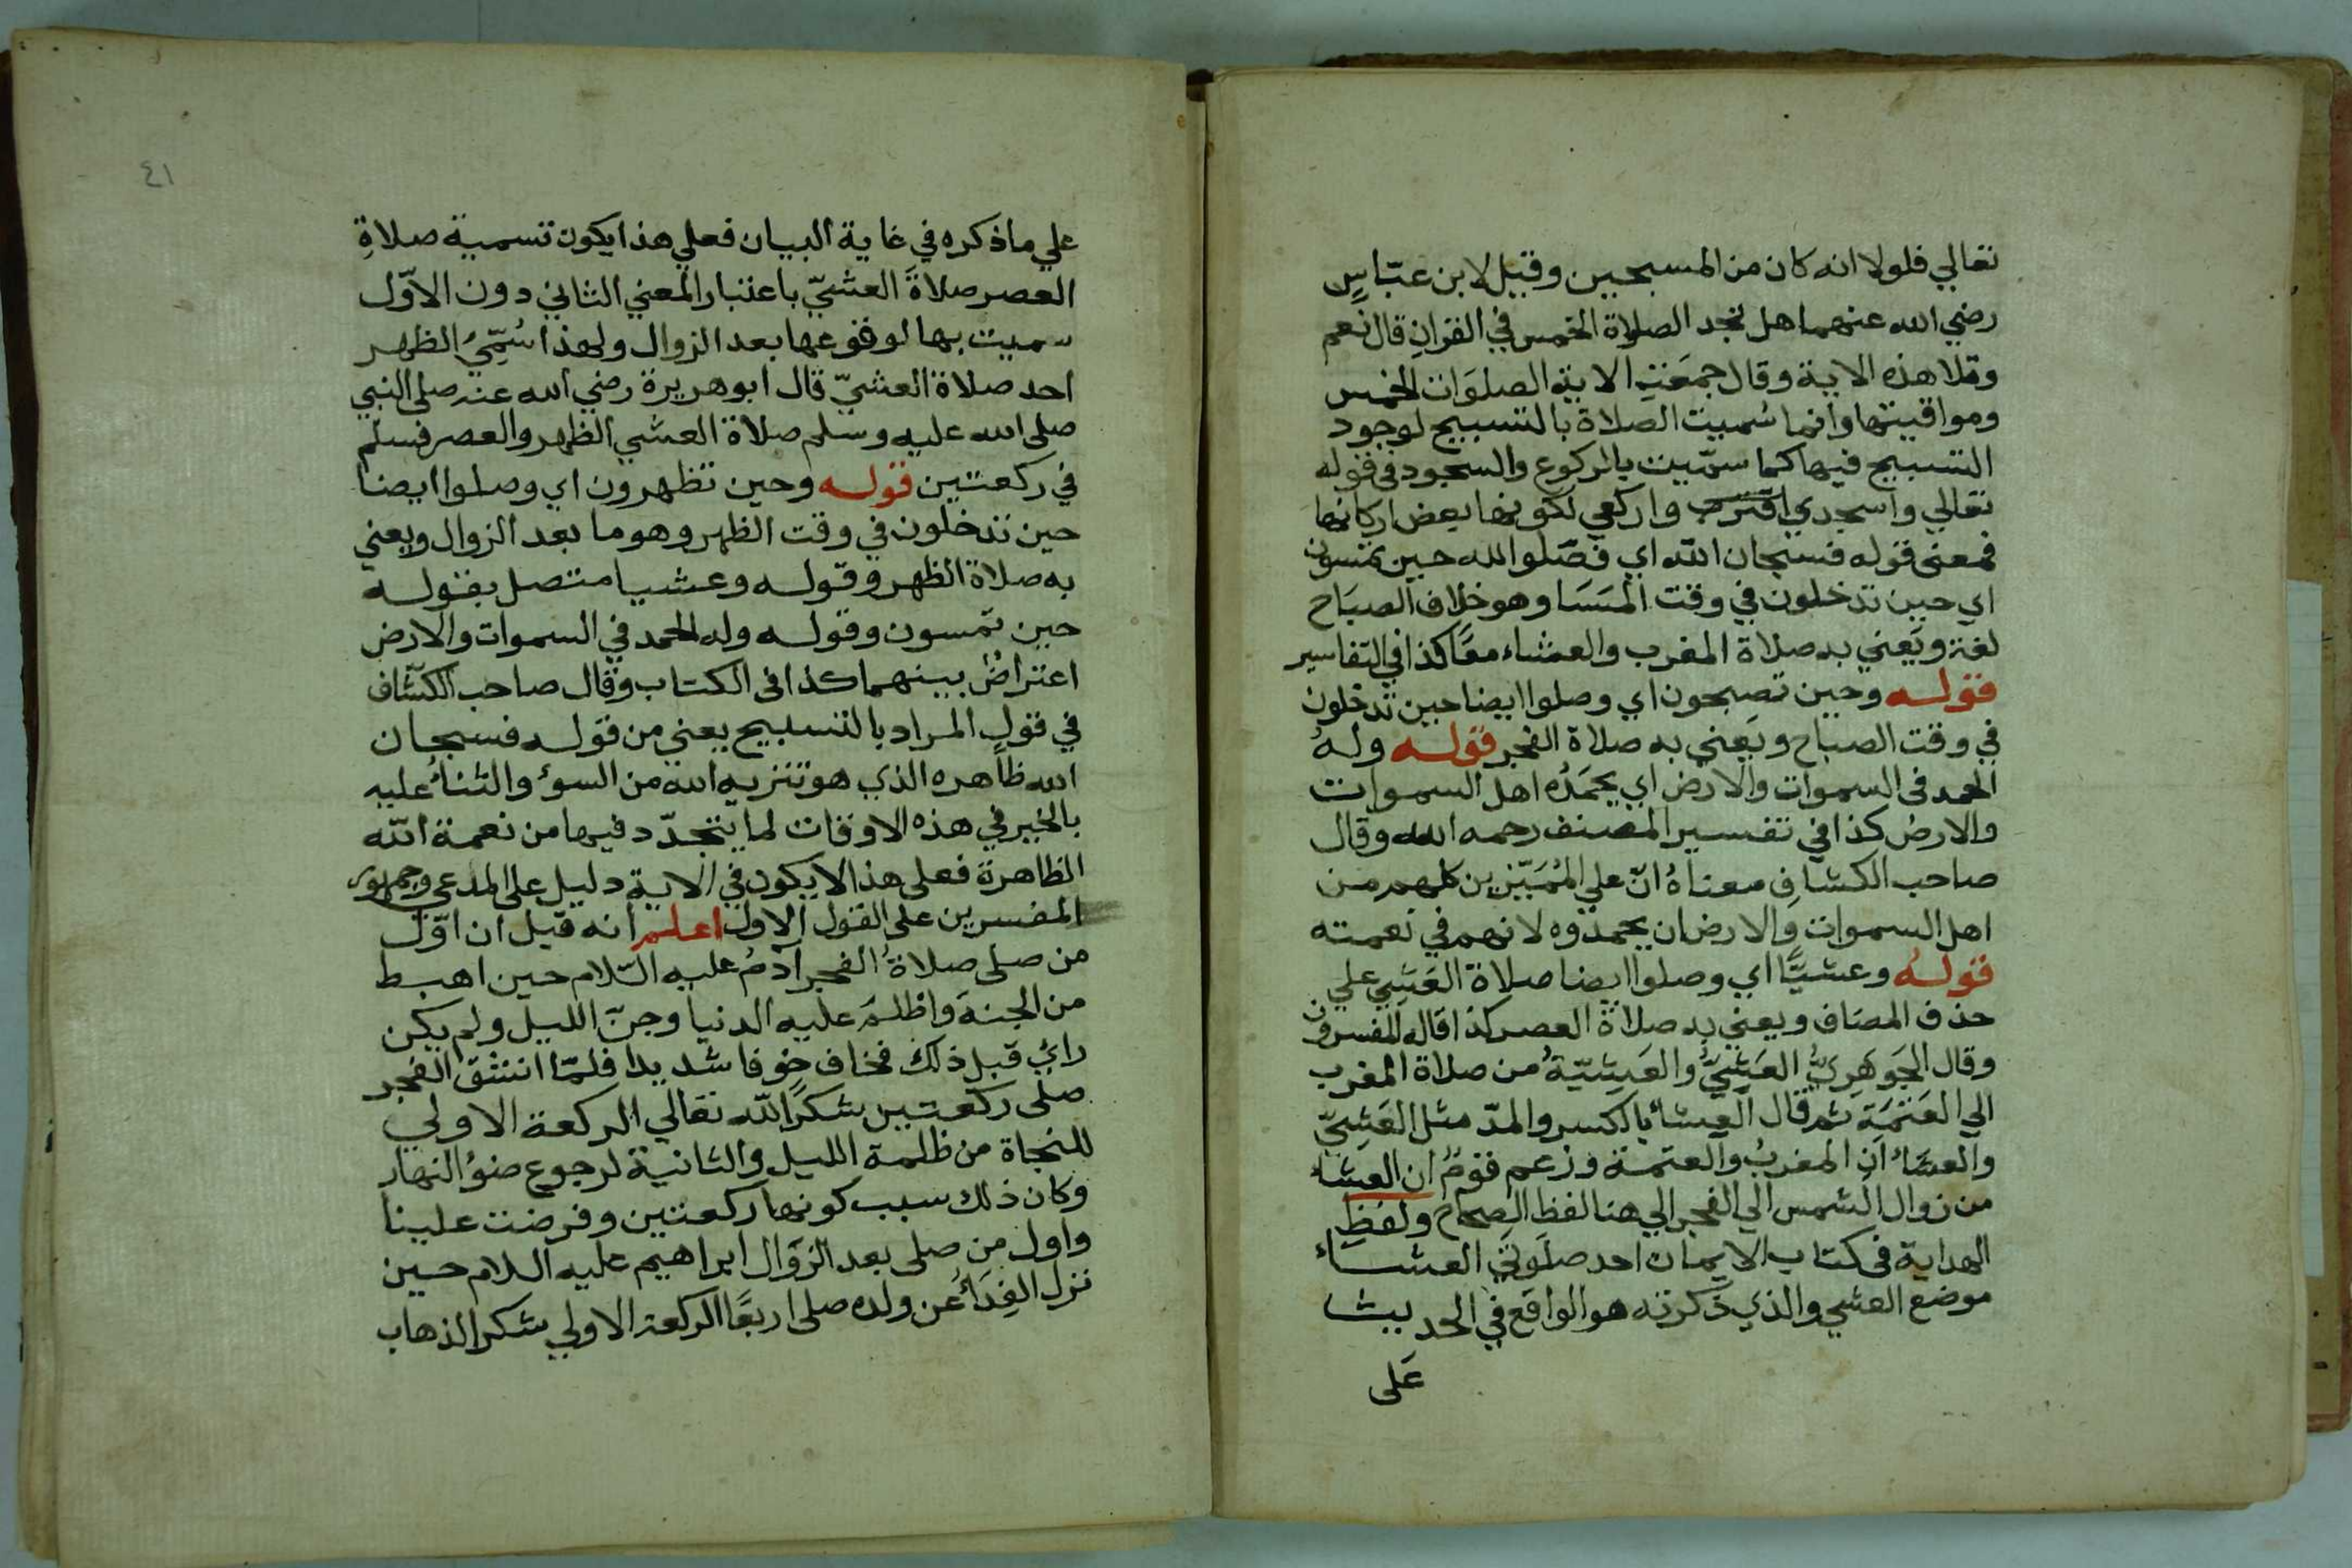 تعالي فلولا انه كان من المسبحين وقيل لابن عبّاسٍ
رضي الله عنهما هل تجد الصلوة الخمس في القرانِ قال نعم
وتلا هذه الاية وقال جمعَتِ الاية الصلوَات الخمس
ومواقيتها وانما سُميت الصلاة بالتسبيح لوجود
التسبيح فيها كما سمّيت بالركوع والسجود في قوله
تعالي واسجدي اقترب واركعي لكونها بعض اركانها
فمعنى قوله فسبحان الله اي فصَلوا لله حين تمسون
اي حين تدخلون في وقت المَسَا وهو خلاف الصبَاح
لغة ويَعني به صلاة المغرب والعشاء معًا كذا في التفاسير
قوله وحين تصبحون اي وصلوا ايضا حين تدخلون
في وقت الصباح ويَعني به صلاة الفجر قوله ولهُ
الحمد في السموات والارض اي يحمَدُه اهل السموات
والارض كذا في تفسير المصنف رحمه الله وقال
صاحب الكشافِ معناهُ انّ علي المُمَيّزين كلهم من
اهل السموات والارض ان يحمدُوه لانهم في نعمته
قولهُ وعشيًّا اي وصلوا ايضا صلاة العَشِي علي
حذف المضاف ويعني به صلاة العصر كذا قاله المفسرون
وقال الجَوهَرِيُّ العَشِيُّ والعَشِيّةُ من صلاة المغرب
الي العَتَمَةِ ثم قال العِشاُ بالكسر والمدّ مثل العَشِيّ
والعشاآنِ المغربُ والعتمة وزعم قومٌ ان العشاء
من زوال الشمس الي الفجر الي هنا لفظ الصحاح ولفظ
الهداية في كتاب الايمان احد صلَوتَي العشاء
موضع العشي والذي ذكرته هو الواقع في الحديث
عَلى
٤١
علي ما ذكره في غاية البيان فعلي هذا يكون تسمية صلاةِ
العصر صلاةَ العشيّ باعتبار المعني الثاني دون الاوّل
سميت بها لوقوعها بعد الزوال ولهذا سُمّيَ الظهر
احد صلاة العشيّ قال ابو هريرة رضي الله عنه صلى النبي
صلى الله عليه وسلم صلاة العشي الظهر والعصر فسلم
في ركعتين قوله وحين تظهرون اي وصلوا ايضا
حين تدخلون في وقت الظهر وهو ما بعد الزوال ويعني
به صلاة الظهر وقوله وعشيا متصل بقوله
حين تمسون وقوله وله الحمد في السموات والارض
اعتراضٌ بينهما كذا في الكتاب وقال صاحب الكشّاف
في قول المراد بالتسبيح يعني من قوله فسبحان
الله ظاهره الذي هو تنزيه الله من السوُ والثناُ عليه
بالخير في هذه الاوقات لما يتجدّد فيها من نعمة الله
الظاهرة فعلى هذا لا يكون في الاية دليل على المدعي وجمهور
المفسرين على القول الاول اعلم انه قيل ان اوّل
من صلى صلاةَ الفجر آدمُ عليه السّلام حين اهبط
من الجنة واظلمَ عليه الدنيا وجنّ الليل ولم يكن
رايُ قبل ذلك فخاف خوفا شديدا فلمّا انشق الفجر
صلى ركعتين شكرًا لله تعالي الركعة الاولي
للنجاة من ظلمة الليل والثانية لرجوع ضوُ النهار
وكان ذلك سبب كونها ركعتين وفرضت علينا
واول من صلى بعد الزوَال ابراهيم عليه السلام حين
نزل الفِدَاُ عن ولده صلى اربعًا الركعة الاولي شكر الذهاب